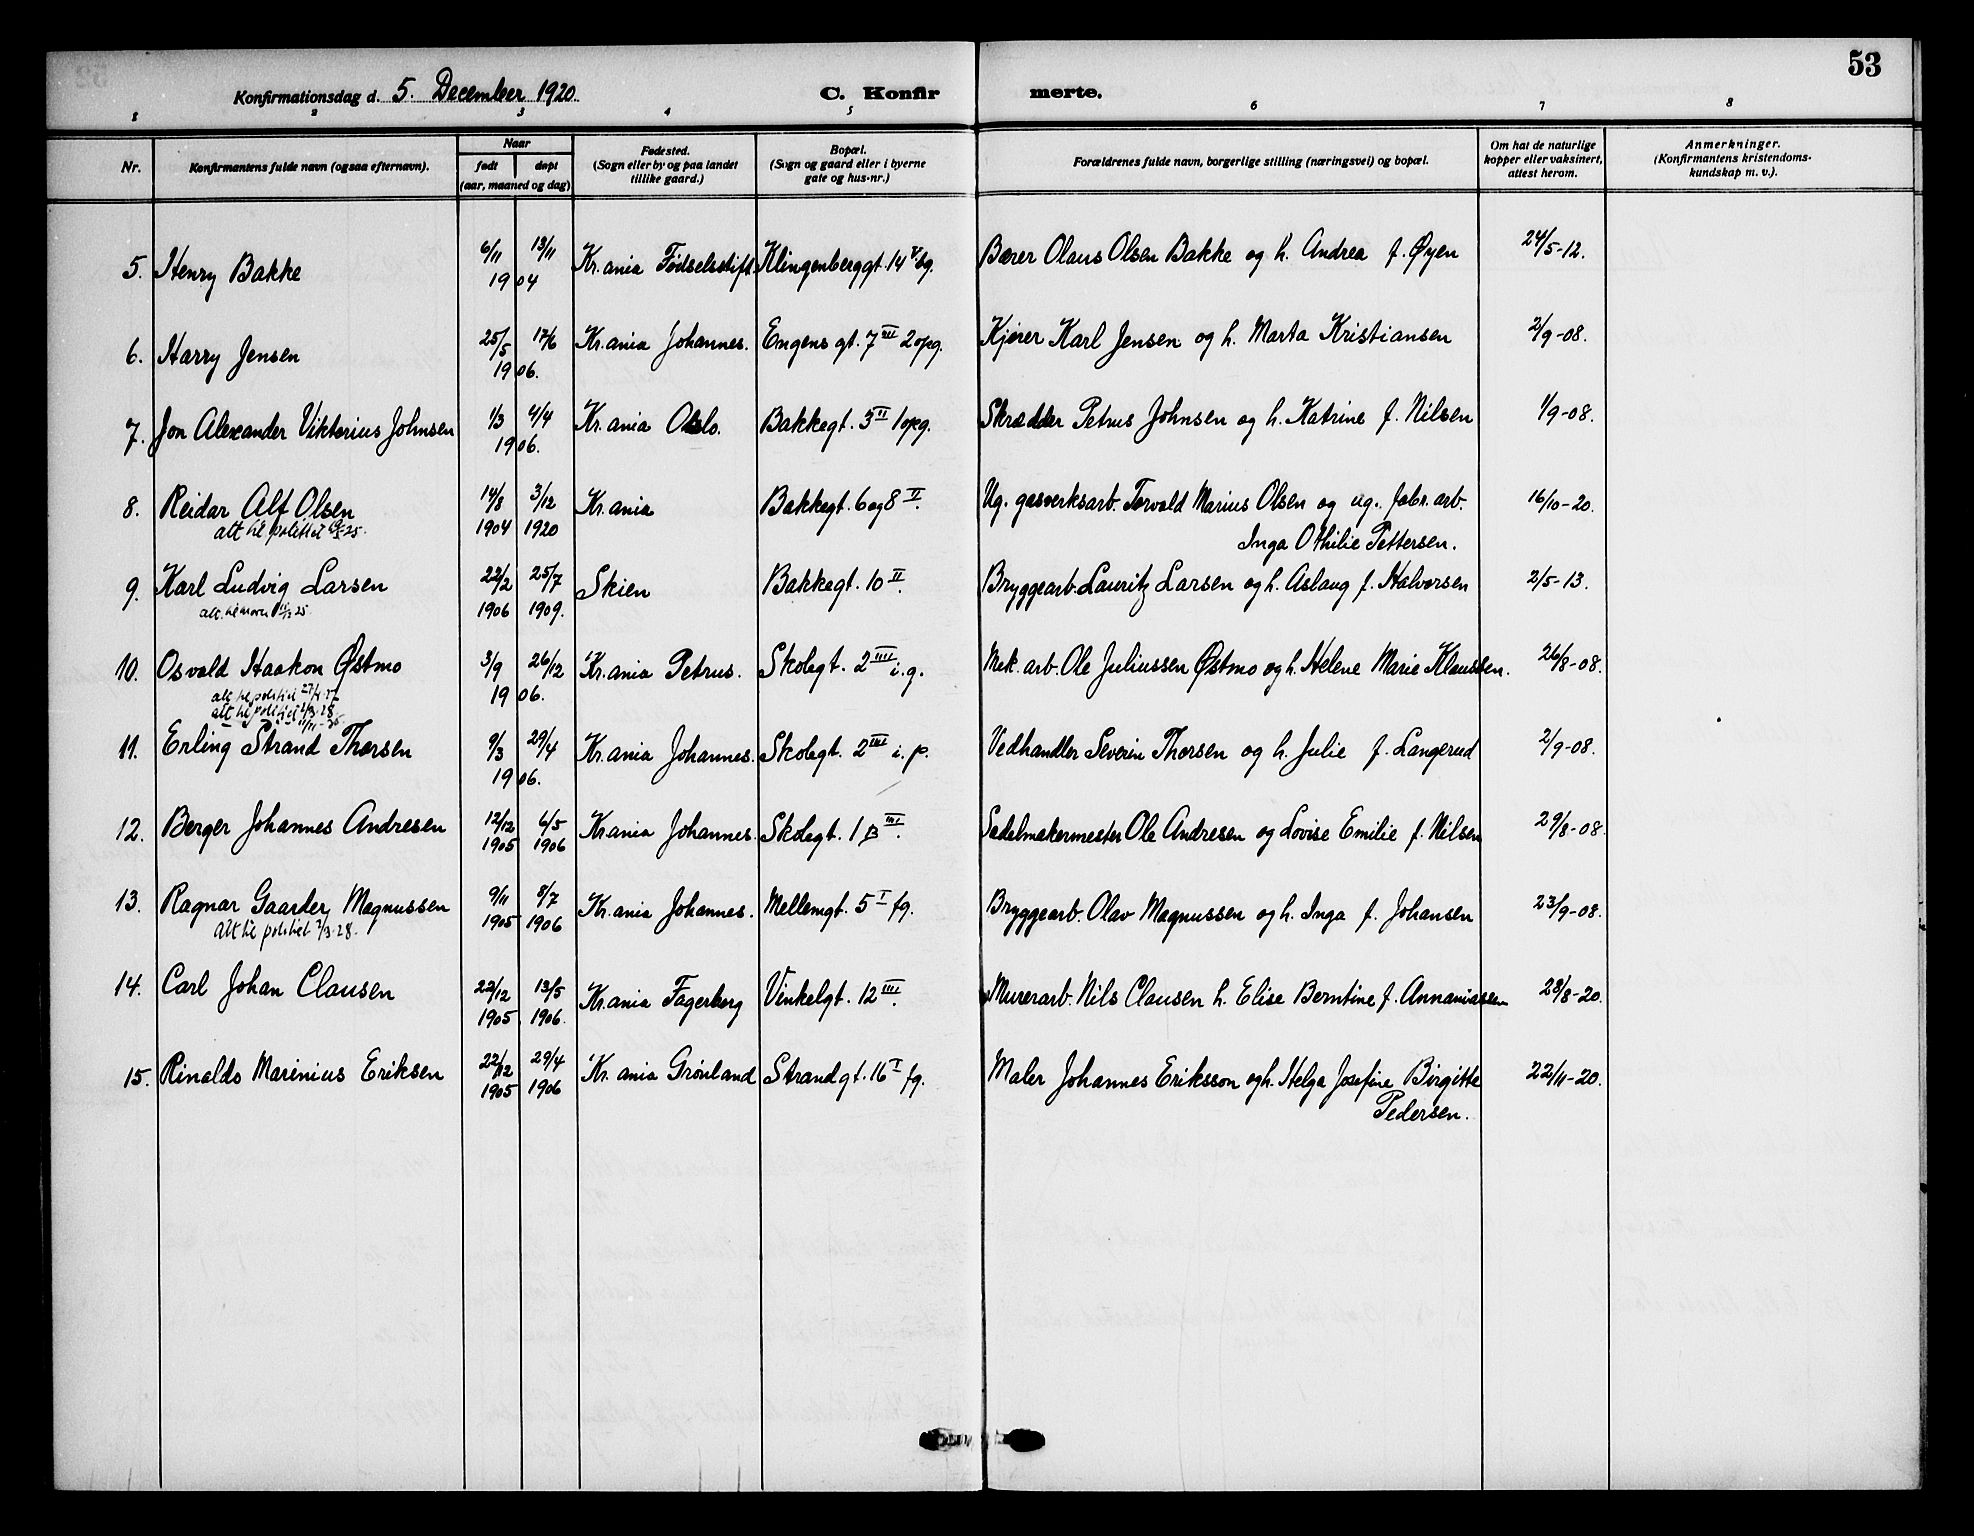 53
Konfirmationsdag d. 5. December 1920. C. Konfirmerte.
1 2 3 4 5 6 7 8
Nr. Konfirmantens fulde navn (ogsaa efternavn). Naar født døpt (aar, maaned og dag) Fødested. (Sogn eller by og paa landet tillike gaard.) Bopæl. (Sogn og gaard eller i byerne gate og hus-nr.) Forældrenes fulde navn, borgerlige stilling (næringsvei) og bopæl. Om hat de naturlige kopper eller vaksinert, attest herom. Anmerkninger. (Konfirmantens kristendoms-kundskap m. v.).
5. Henry Bakke 6/11 13/11 1904 Kr.ania Fødselsstift. Klingenberggt. 14 V bg. Bærer Olaus Olsen Bakke og h. Andrea f. Øyen 24/5-12.
6. Harry Jensen 25/5 17/6 1906. Kr.ania Johannes. Engens gt. 7 III 2opg. Kjører Karl Jensen og h. Marta Kristiansen 2/9-08.
7. Jon Alexander Viktorius Johnsen 1/3 4/4 1906. Kr.ania Oslo. Bakkegt. 5 II 1opg. Skrædder Petrus Johnsen og h. Katrine f. Nilsen 1/9-08.
8. Reidar Alf Olsen 14/8 1904 3/12 1920 Kr.ania Bakkegt. 6og8 II. Ug. gasverksarb. Torvald Marius Olsen og ug. fabr. arb. 16/10-20.
att til politiet
Inga Othilie Pettersen.
9. Karl Ludvig Larsen 22/2 1906 25/7 1909. Skien Bakkegt. 10 II. Bryggearb. Lauritz Larsen og h. Aslaug f. Halvorsen 2/5-13.
10. Osvald Haakon Østmo 3/9 26/12 1906. Kr.ania Petrus. Skolegt. 2 III i.g. Mek. arb. Ole Juliussen Østmo og h. Helene Marie Klaussen. 26/8-08.
att til politiet
att til politiet 2/3-28.
11. Erling Strand Thorsen 9/3 29/4 1906. Kr.ania Johannes. Skolegt. 2 III i.p. Vedhandler Severin Thorsen og h. Julie f. Langerud 2/9-08.
12. Berger Johannes Andresen 12/12 1905 6/5 1906 Kr.ania Johannes. Skolegt. 1 B III. Sadelmakermester Ole Andresen og Lovise Emilie f. Nilsen 29/8-08.
13. Ragnar Gaarder Magnussen 9/11 1905 8/7 1906 Kr.ania Johannes. Mellemgt. 5 I fg. Bryggearb. Olav Magnussen og h. Inga f. Johansen 23/9-08.
Att til politiet 2/3-28.
14. Carl Johan Clausen 22/12 1905. 13/5 1906. Kr.ania Fagerborg Vinkelgt. 12 III. Murerarb. Nils Clausen h. Elise Berntine f. Annaniassen 28/8-20.
15. Rinaldo Marinius Eriksen 22/12 1905 29/4 1906 Kr.ania Grønland Strandgt. 16 I fg. Maler Johannes Eriksson og h. Helga Josefine Birgitte 22/11-20.
Pedersen.